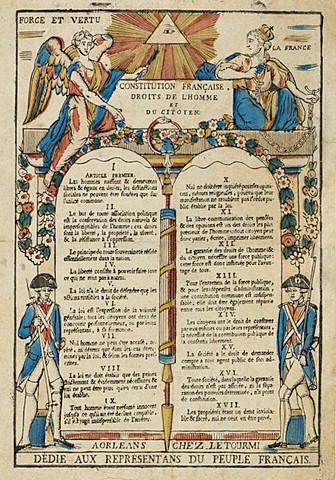 FORCE ET VERTU
LA FRANCE
CONSTITUTION FRANÇAISE,
DROITS DE L'HOMME
ET
DU CITOYEN.
I
ARTICLE PREMIER.
Les hommes naissent & demeurent
libres & égaux en droits; les distinctions
sociales ne peuvent être fondées que sur
l'utilité commune.
II.
Le but de toute association politique
est la conservation des droits naturels &
imprescriptibles de l'homme; ces droits
sont la liberté, la propriété, la sûreté,
& la résistance à l'oppression.
III
Le principe de toute souveraineté réside
essentiellement dans la nation.
La liberté consiste à pouvoir faire tout
ce qui ne nuit pas à autrui.
La loi n'a le droit de défendre que les
actions nuisibles à la société.
La loi est l'expression de la volonté
générale; tous les citoyens ont droit de
concourir personnellement, ou par leurs
représentans, à sa formation.
VII
Nul homme ne peut être accusé,
VIII
La loi ne doit établir que des peines
IX
Tout homme étant présumé innocent
jusqu'à ce qu'il ait été déclaré coupable,
X.
Nul ne doit être inquiété pour ses opinions,
même religieuses, pourvu que leur
manifestation ne trouble pas l'ordre public
établi par la loi.
XI.
La libre communication des pensées
& des opinions est un des droits les plus
précieux de l'homme: tout citoyen peut
donc parler, écrire, imprimer librement.
XII.
La garantie des droits de l'homme &
du citoyen nécessite une force publique:
cette force est donc instituée pour l'avantage
de tous.
XIII.
Pour l'entretien de la force publique,
& pour les dépenses d'administration
une contribution commune est indispensable;
elle doit être également répartie
entre tous les citoyens.
XIV.
Les citoyens ont le droit de constater
par eux-mêmes ou par leurs représentans
la nécessité de la contribution publique
XV.
La société a le droit de demander
compte à tout agent public de son administration.
XVI.
Toute société, dans laquelle la garantie
des droits n'est pas assurée, ni la séparation
des pouvoirs déterminée, n'a point
de constitution.
XVII.
Les propriétés étant un droit inviolable
& sacré, nul ne peut en être privé.
A ORLEANS CHEZ LETOURMI
DÉDIÉ AUX REPRÉSENTANS DU PEUPLE FRANÇAIS.